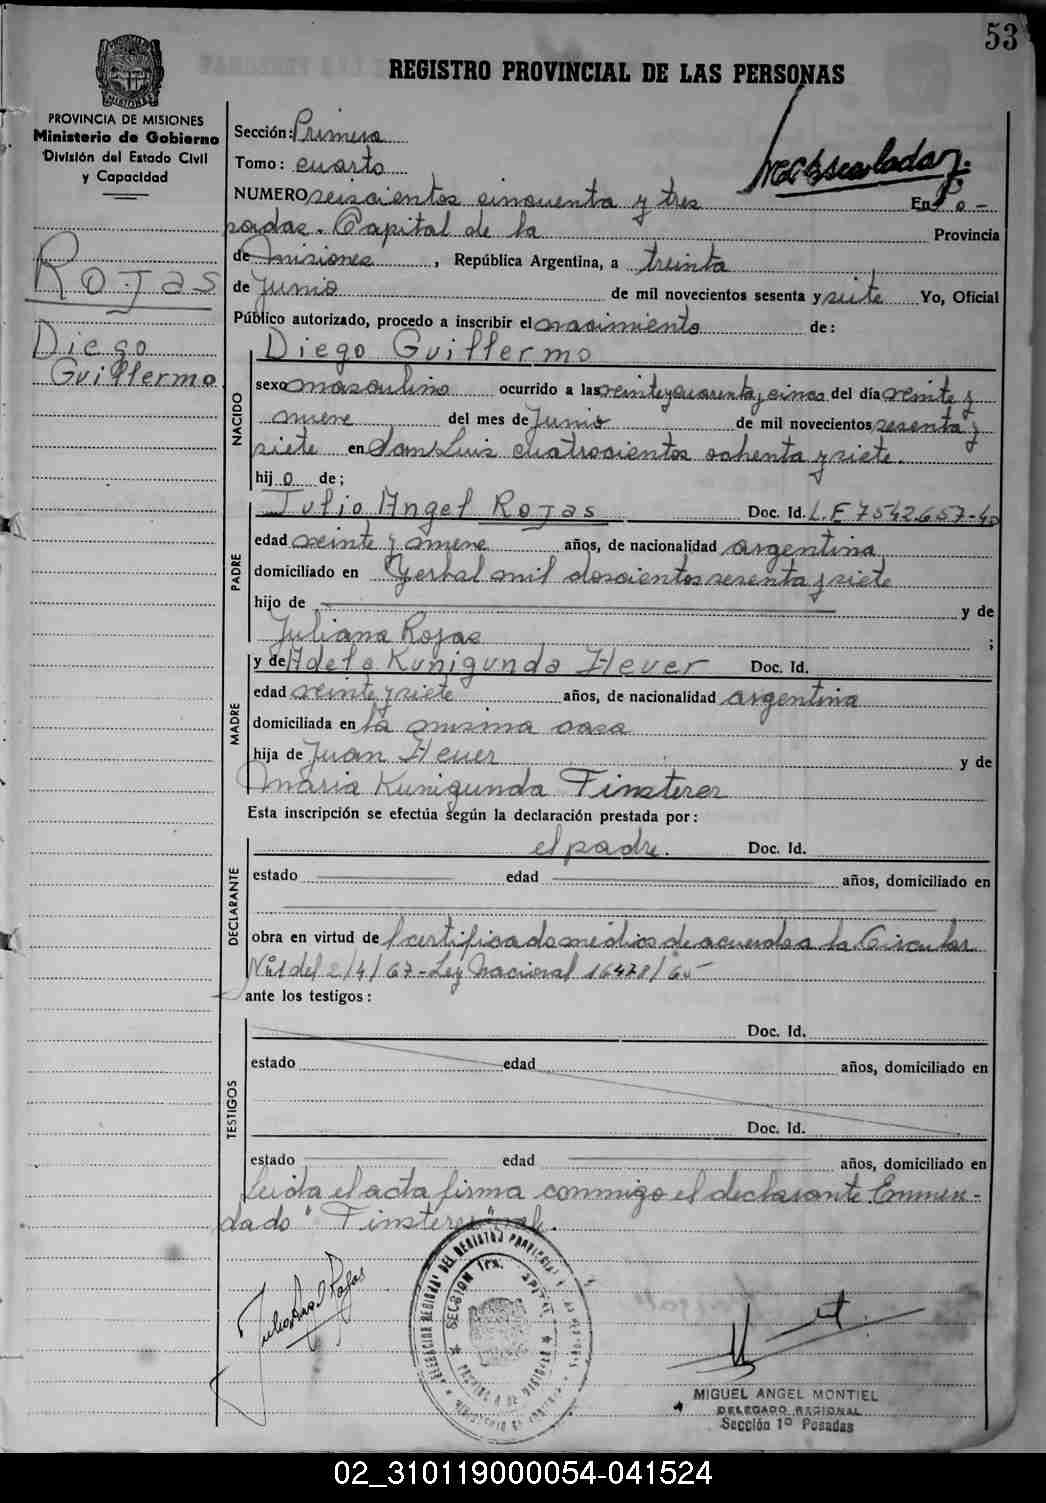 53
REGISTRO PROVINCIAL DE LAS PERSONAS
MISIONES
PROVINCIA DE MISIONES
Ministerio de Gobierno
División del Estado Civil
y Capacidad
Rojas
Diego
Guillermo
Sección: Primera
Tomo: cuarto
NUMERO seiscientos cincuenta y tres En Po-
sadas. Capital de la Provincia
de Misiones, República Argentina, a treinta
de Junio de mil novecientos sesenta y siete Yo, Oficial
Público autorizado, procedo a inscribir el nacimiento de:
NACIDO
Diego Guillermo
sexo masculino ocurrido a las veinte y cuarenta y cinco del día veinte y
nueve del mes de Junio de mil novecientos sesenta y
siete en San Luis cuatrocientos ochenta y siete.
hijo de;
PADRE
Julio Angel Rojas Doc. Id. L.E 7.542.657-
edad veinte y nueve años, de nacionalidad argentina
domiciliado en Yerbal mil doscientos sesenta y siete
hijo de y de
Juliana Rojas ;
MADRE
y de Adela Kunigunda Heuer Doc. Id.
edad veinte y siete años, de nacionalidad argentina
domiciliada en la misma casa
hija de Juan Heuer y de
Maria Kunigunda Finsterer
Esta inscripción se efectúa según la declaración prestada por:
DECLARANTE
el padre. Doc. Id.
estado edad años, domiciliado en
obra en virtud de certificado médico de acuerdo a la Circular
Nº1 del 2/4/67-Ley Nacional 16478/
ante los testigos:
TESTIGOS
Doc. Id.
estado edad años, domiciliado en
Doc. Id.
estado edad años, domiciliado en
Leida el acta firma conmigo el declarante Enmen-
dado "Finsterer" vale.
Julio Angel Rojas
SECCION 1ra.
MIGUEL ANGEL MONTIEL
DELEGADO REGIONAL
Sección 1º Posadas
02_310119000054-041524